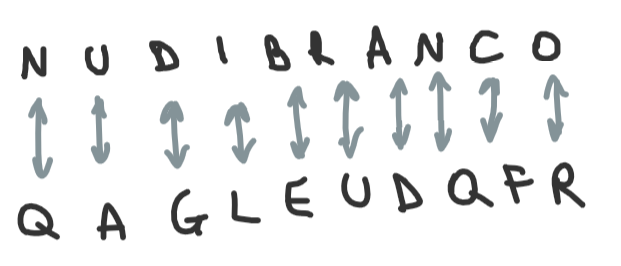 N U D I B R A N C O
Q A G L E U D Q F R